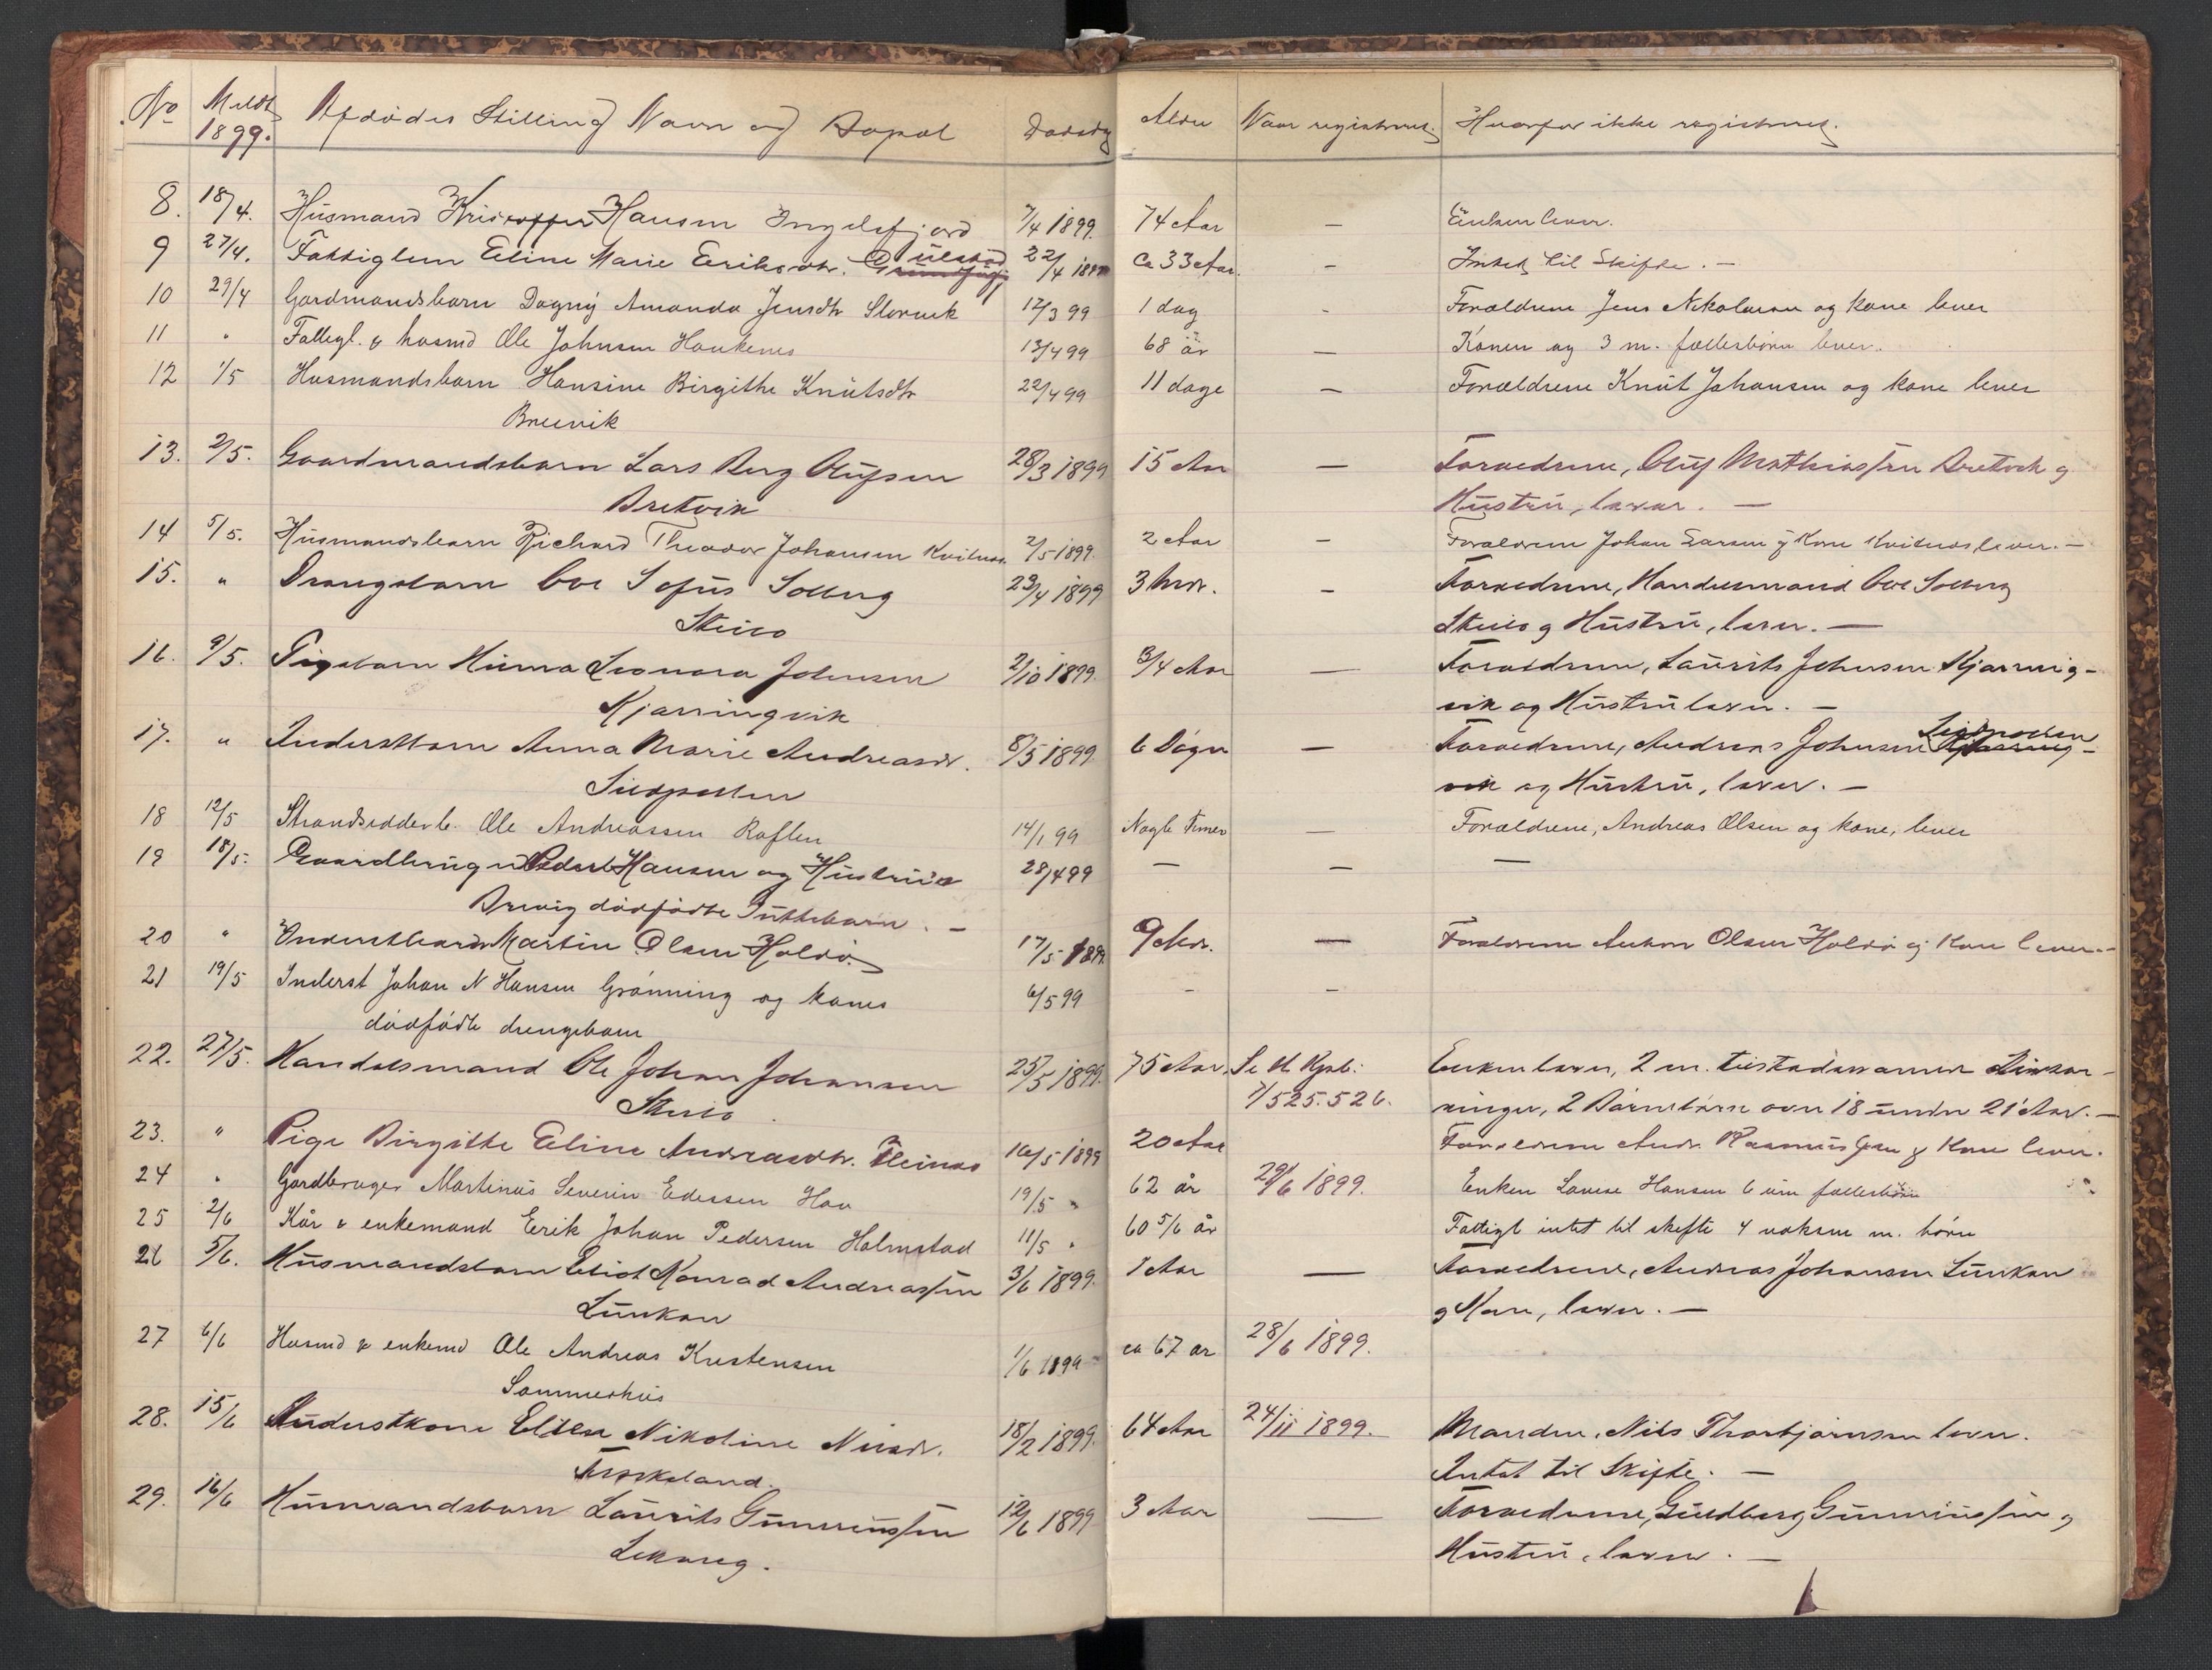 No Meldt 1899. Afdødes Stilling Navn og Bopæl Dødsdag Alder Naar registreret. Hvorfor ikke registreret.
8. 18/4. Husmand Kristoffer Hansen Ingelsfjord 7/4 1899. 74 Aar — Enken lever.
9 27/4. Fattiglem Eline Marie Eriksdtr. Gulstad 22/4 1899 Ca 33 Aar. - Intet til Skifte. —
10 29/4 Gardmandsbarn Dagny Amanda Jensdtr Slorvik 12/3 99 1 dag - Forældrene Jens Nikolaisen og kone lever
11 " Fattigl. & husmd Ole Johnsen Haukenes 13/4 99 68 år — Konen og 3 m. fællesbörn lever.
12 1/5 Husmandsbarn Hansine Birgithe Knutsdtr 22/4 99 11 dage — Forældrene Knut Johansen og kone lever
Breivik
13. 2/5. Gaardmandsbarn Lars Berg Olufsen 28/3 1899 15 Aar — Forældrene, Oluf Mathiassen Bretvik og
Bretvik Hustru, lever. —
14 5/5. Husmandsbarn Richard Theodor Johansen Kvitnes 2/5 1899. 2 Aar - Forældrene Johan Larsen og Kone Kvitnes lever. —
15. " Drengebarn Ove Sofus Solberg 23/4 1899 3 Mdr. - Forældrene, Handelsmand Ove Solberg
Steiro Steiro og Hustru, lever. —
16. 9/5. Pigebarn Minna Leonora Johnsen 2/10 1899. 3/4 Aar — Forældrene, Laurits Johnsen Kjerring-
Kjerringvik vik og Hustru lever. —
17. " Inderstbarn Anna Marie Andreasdr. 8/5 1899. 6 Døgn — Forældrene, Andreas Johnsen
vik og Hustru, lever. —
18 12/5 Strandsidderb. Ole Andreassen Raften 14/1 99 Nogle timer — Forældrene, Andreas Olsen og kone, lever
19 18/5. Gaardbruger Peder Hansen og Hustrus 28/4 99 — — —
Brevig dødfødte Guttebarn. —
20 " Inderstbarn Martin Olsen Holdö 17/5 1899. 9 Mdr. — Forældrene Anton Olsen Holdö og Kone lever. —
21 19/5 Inderst Johan N Hansen Grønning og kones 6/5 99 - -
dødfødte drengebarn
22. 27/5. Handelsmand Ole Johan Johansen 25/5 1899. 75 Aar. Se Enken lever, 2 m.
Steiro 7/525.526. 2 Børnebörn over 18 under 21 Aar. —
23. " Pige Birgitte Eline Andreasdtr. Fleines 16/5 1899 20 Aar Forældrene Andr. Rasmussen & Kone lever.
24 " Gardbruger Martinus Severin Edessen Hov 19/5 " 62 år 29/6 1899. Enken Lovise Hansen 6 um fællesbörn
25 2/6 Kår & enkemand Erik Johan Pedersen Holmstad 11/5 " 60 5/6 år Fattigt intet til skifte 4 voksne m. börn
26 5/6. Husmandsbarn Eliot Konrad Andreassen 3/6 1899. 1 Aar — Forældrene, Andreas Johansen Lunkan
Lunkan og Kone, lever. —
27 6/6 Husmd & enkemd Ole Andreas Kristensen 1/6 1899 ca 67 år 28/6 1899.
Sommerhus
28. 15/6 Inderstkone Ellen Nikoline Nilsdr. 18/2 1899. 64 Aar 24/11 1899. Manden, Nils Thorbjörnsen lever.
Intet til Skifte. —
29. 16/6 Husmandsbarn Laurits Gunnriussen 12/6 1899 3 Aar — Forældrene, Guldberg Gunnriussen og
Hustru, lever. —